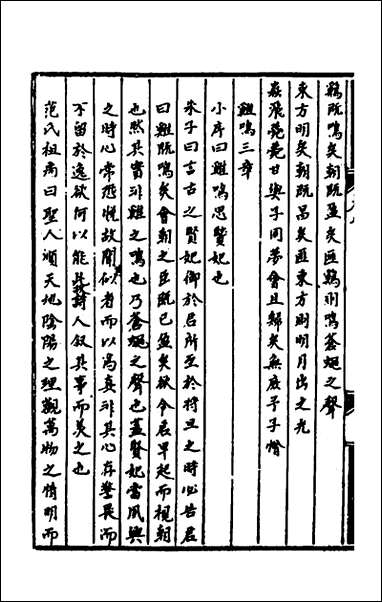 鷄既鳴矣朝既盈矣匪鷄則鳴蒼蠅之聲
東方明矣朝既昌矣匪東方則明月出之光
蟲飛薨薨甘與子同夢會且歸矣無庶予子憎
雞鳴三章
小序曰雞鳴思賢妃也
朱子曰言古之賢妃御於君所至於將旦之時必告君
曰雞既鳴矣會朝之臣既已盈矣欲令君早起而視朝
也然其實非雞之鳴也乃蒼蠅之聲也蓋賢妃當夙興
之時心常恐晚故聞其似者而以為真非其心存警畏而
不留於逸欲何以能此故詩人叙其事而美之也
范氏祖禹曰聖人順天地陰陽之理觀萬物之情明而